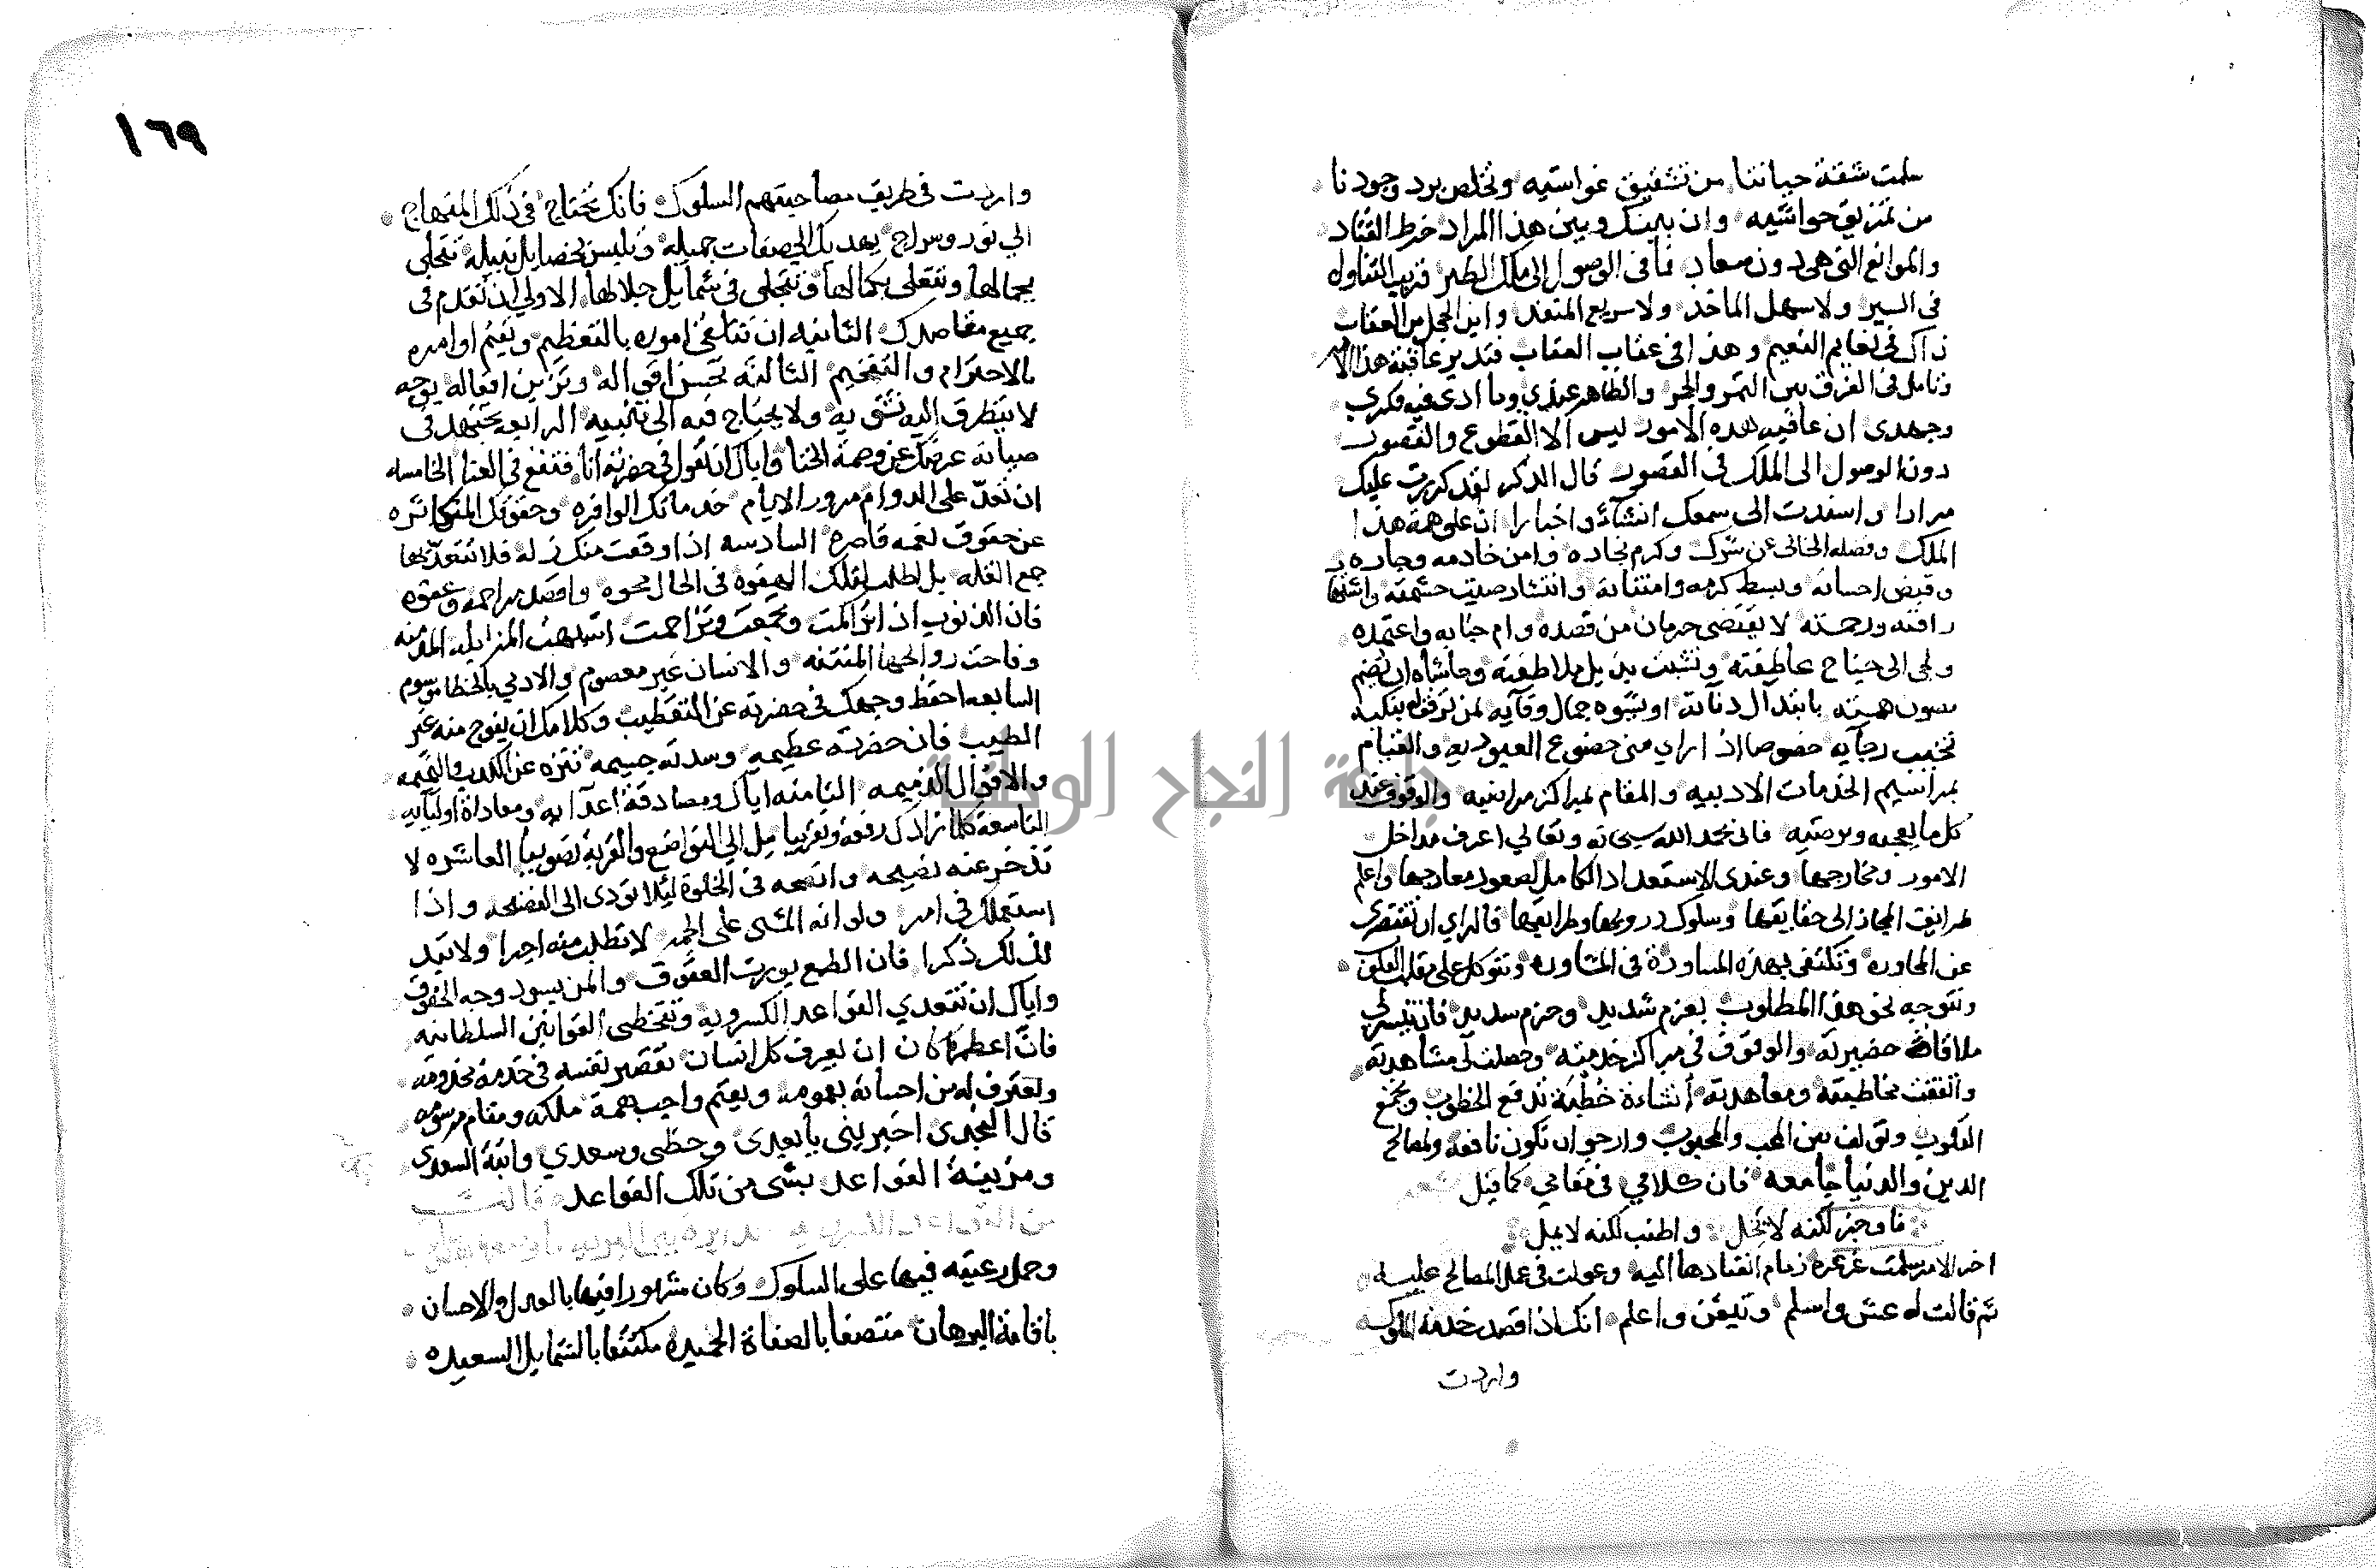 سلمت شقة حياتنا من تشقيق غواشيه وتخلص برد وجودنا
من تمزيق حواشيه وان بينك وبين هذا المراد خرط القتاد
والموانع التي هي دون سعاد فما في الوصول الى ملك الطير قريب التناول
في السير ولا سهل الماخذ ولا سريع المنفذ واين الحجل من العقاب
ذاك في نعايم النعيم وهذا في عقاب العقاب فتدبر عاقبة هذا الامر
وتامل في الفرق بين التمر والجمر والظاهر عندي وما ادى فيه فكري
وجهدي ان عاقبه هذه الامور ليس الا القطوع والقصور
دون الوصول الى الملك في القصور قال الذكر لقد كررت عليك
مرارا واسندت الى سمعك انشاء واخبارا ان علو همة هذا
الملك وفضله الخالي عن شرك وكرم نجاده وامن خادمه وجاره
وفيض احسانه وبسط كرمه وامتنانه وانتشار صيت حشمته واشتهار
رافته ورحمته لا يقتضي حرمان من قصده وام جنابه واعتمده
ولجى الى جناح عاطفته وتشبث بذيل ملاطفته وحاشاه ان يضيم
مصون همته بابتدال دناته او يشوه جمال وقايه لمن ترفق له بنكبة
تخيب رجايه خصوصا اذا راى مني خضوع العبوديه والقيام
بمراسيم الخدمات الادبيه والمقام بمراكز مراضيه والوقوف عند
كل ما يعجبه ويرضيه فاني بحمد الله سبحانه وتعالي اعرف مداخل
الامور ومخارجها وعندي الاستعداد الكامل لصعود معارجها واعلم
طرايق المجاز الى حقايقها وسلوك دروبها وطرايقها فالراي ان تقتصري
عن المحاوره وتكتفي بهذه المساورة في المشاوره ونتوكل على مقلب القلوب
ونتوجه نحو هذا المطلوب بعزم شديد وحزم سديد فان تيسر لي
ملاقاة حضرته والوقوف في مراكز خدمته وحصلت لي مشاهدته
واتفقت مخاطبته ومعاهدته انشات خطبة تدفع الخطوب وتجمع
القلوب وتولف بين المحب والمحبوب وارجو ان تكون نافعه ولمصالح
الدين والدنيا جامعه فان كلامي في مقامي كما قيل شعر
فاوجز لكنه لا يخل واطنب لكنه لا يمل
اخر الامر سلمت غرغرة زمام انقيادها اليه وعولت في عمل المصالح عليه
ثم قالت له عش واسلم وتيقن واعلم انك اذا قصدت خدمة الملوك
واردت
١٦٩
واردت في طريق مصاحبتهم السلوك فانك تحتاج في ذلك المنهاج
الي نور وسراج يهديك الى صفات جميله وتلبس بخصايل نبيله تتحلى
بجمالها وتتعلى بكمالها وتتجلى في شمايل جلالها الاولي ان تقدم في
جميع مقاصدك الثانيه ان تتلقى اموره بالتعظيم وتقيم اوامره
بالاحترام والتفخيم الثالثه تحسن اقواله وتزين افعاله بوجه
لا يتطرق اليه شي به ولا يحتاج فيه الى تنبيه الرابعه تجتهد في
صيانة عرضك عن وصمة الخنا واياك ان تقول في حضرته انا فتقع في العنا الخامسه
ان تعد على الدوام مرور الايام خدماتك الوافره وحقوقك المتكاثره
عن حقوق نعمه قاصره السادسه اذا وقعت منك زلة فلا تتعد بها
جمع القله بل اطلب لتلك الهفوه في الحال محوه واقصد مراحمه وعفوه
فان الذنوب اذا تراكمت وتجمعت وتزاحمت اشبهت المزابل المدمنه
وفاحت روايحها المنتنه والانسان غير معصوم والادمي بالخطا موسوم
السابعه احفظ وجهك في حضرته عن التقطيب وكلامك ان يفوح منه غير
الطيب فان حضرته عظيمه وسدته جسيمه تتنزه عن الكذب والنميمه
والاقوال الذميمه الثامنه اياك ومصادقة اعدايه ومعاداة اوليايه
التاسعة كلما زادك رفعة وتقريبا مل الي التواضع والقربة تصويبا العاشره لا
تذخر عنه نصيحه وانصحه في الخلوة ليلا تودي الى الفضيحه واذا
استعملك في امر ولو انه المشى على الجمر لا تطلب منه اجرا ولا تبد
لذلك ذكرا فان الطمع يورث العقوق والمن يسود وجه الحقوق
واياك ان تتعدي القواعد الكسرويه وتتخطى القوانين السلطانيه
فان اعظم الاركان ان يعرف كل انسان تقصير نفسه في خدمة مخدومه
ويعترف له من احسانه بعمومه ويقيم واجب همة ملكه ومقام مرسومه
قال النجدى اخبريني يا بعيدى وحظى وسعدي وابنة السعدي
ومزينة القواعد بشى من تلك القواعد قالت
وحمل رعيته فيها على السلوك وكان مشهورا فيها بالعدل والاحسان
باقامة البرهان متصفا بالصفاة الحميده مكتنفا بالشمايل السعيده
جامعة النجاح الوطنية